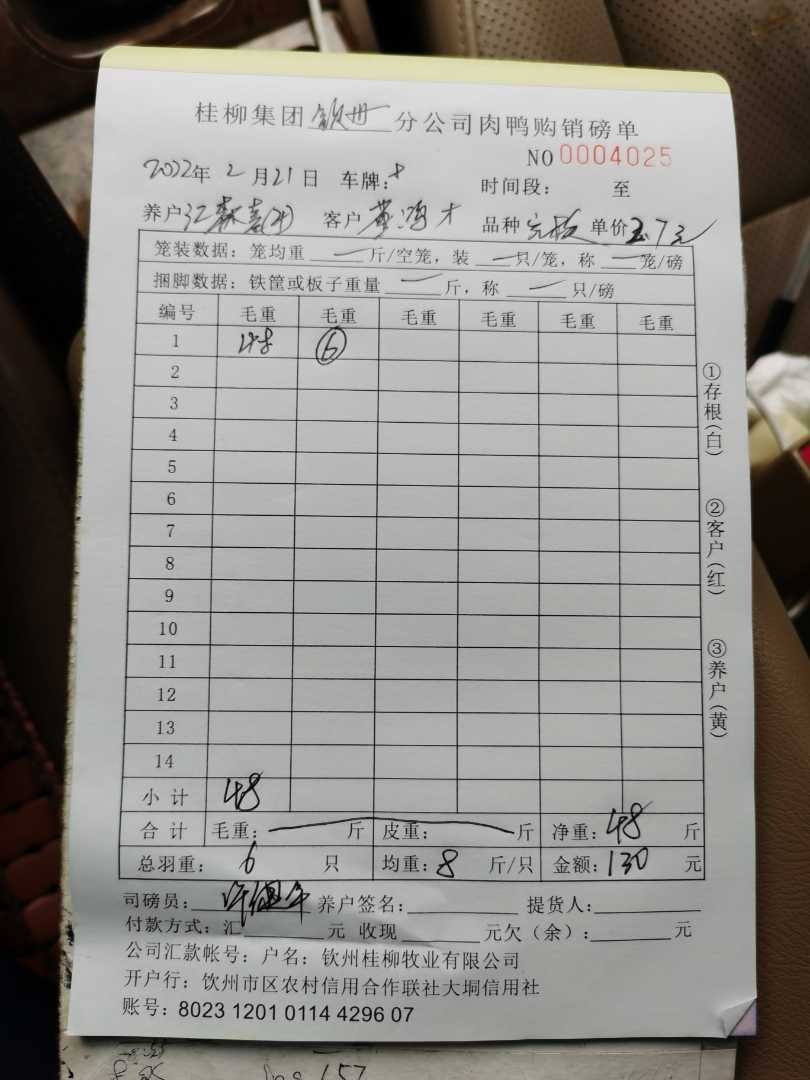 桂柳集团 钦州 分公司肉鸭购销磅单
NO 0004025
2022年 2 月 21 日 车牌： 时间段： 至
养户 客户 黄鸿才 品种 单价 2.7元
笼装数据：笼均重 一 斤/空笼，装 一 只/笼，称 一 笼/磅
捆脚数据：铁筐或板子重量 一 斤，称 一 只/磅
编号 毛重 毛重 毛重 毛重 毛重 毛重
1 48 ⑥
2
3
4
5
6
7
8
9
10
11
12
13
14
小计 48
合计 毛重： 斤 皮重： 斤 净重：48 斤
总羽重： 6 只 均重：8 斤/只 金额：130 元
司磅员： 养户签名： 提货人：
付款方式：汇 元 收现 元欠（余）： 元
公司汇款帐号：户名：钦州桂柳牧业有限公司
开户行：饮州市区农村信用合作联社大垌信用社
账号：8023 1201 0114 4296 07
①存根（白）
②客户（红）
③养户（黄）
157